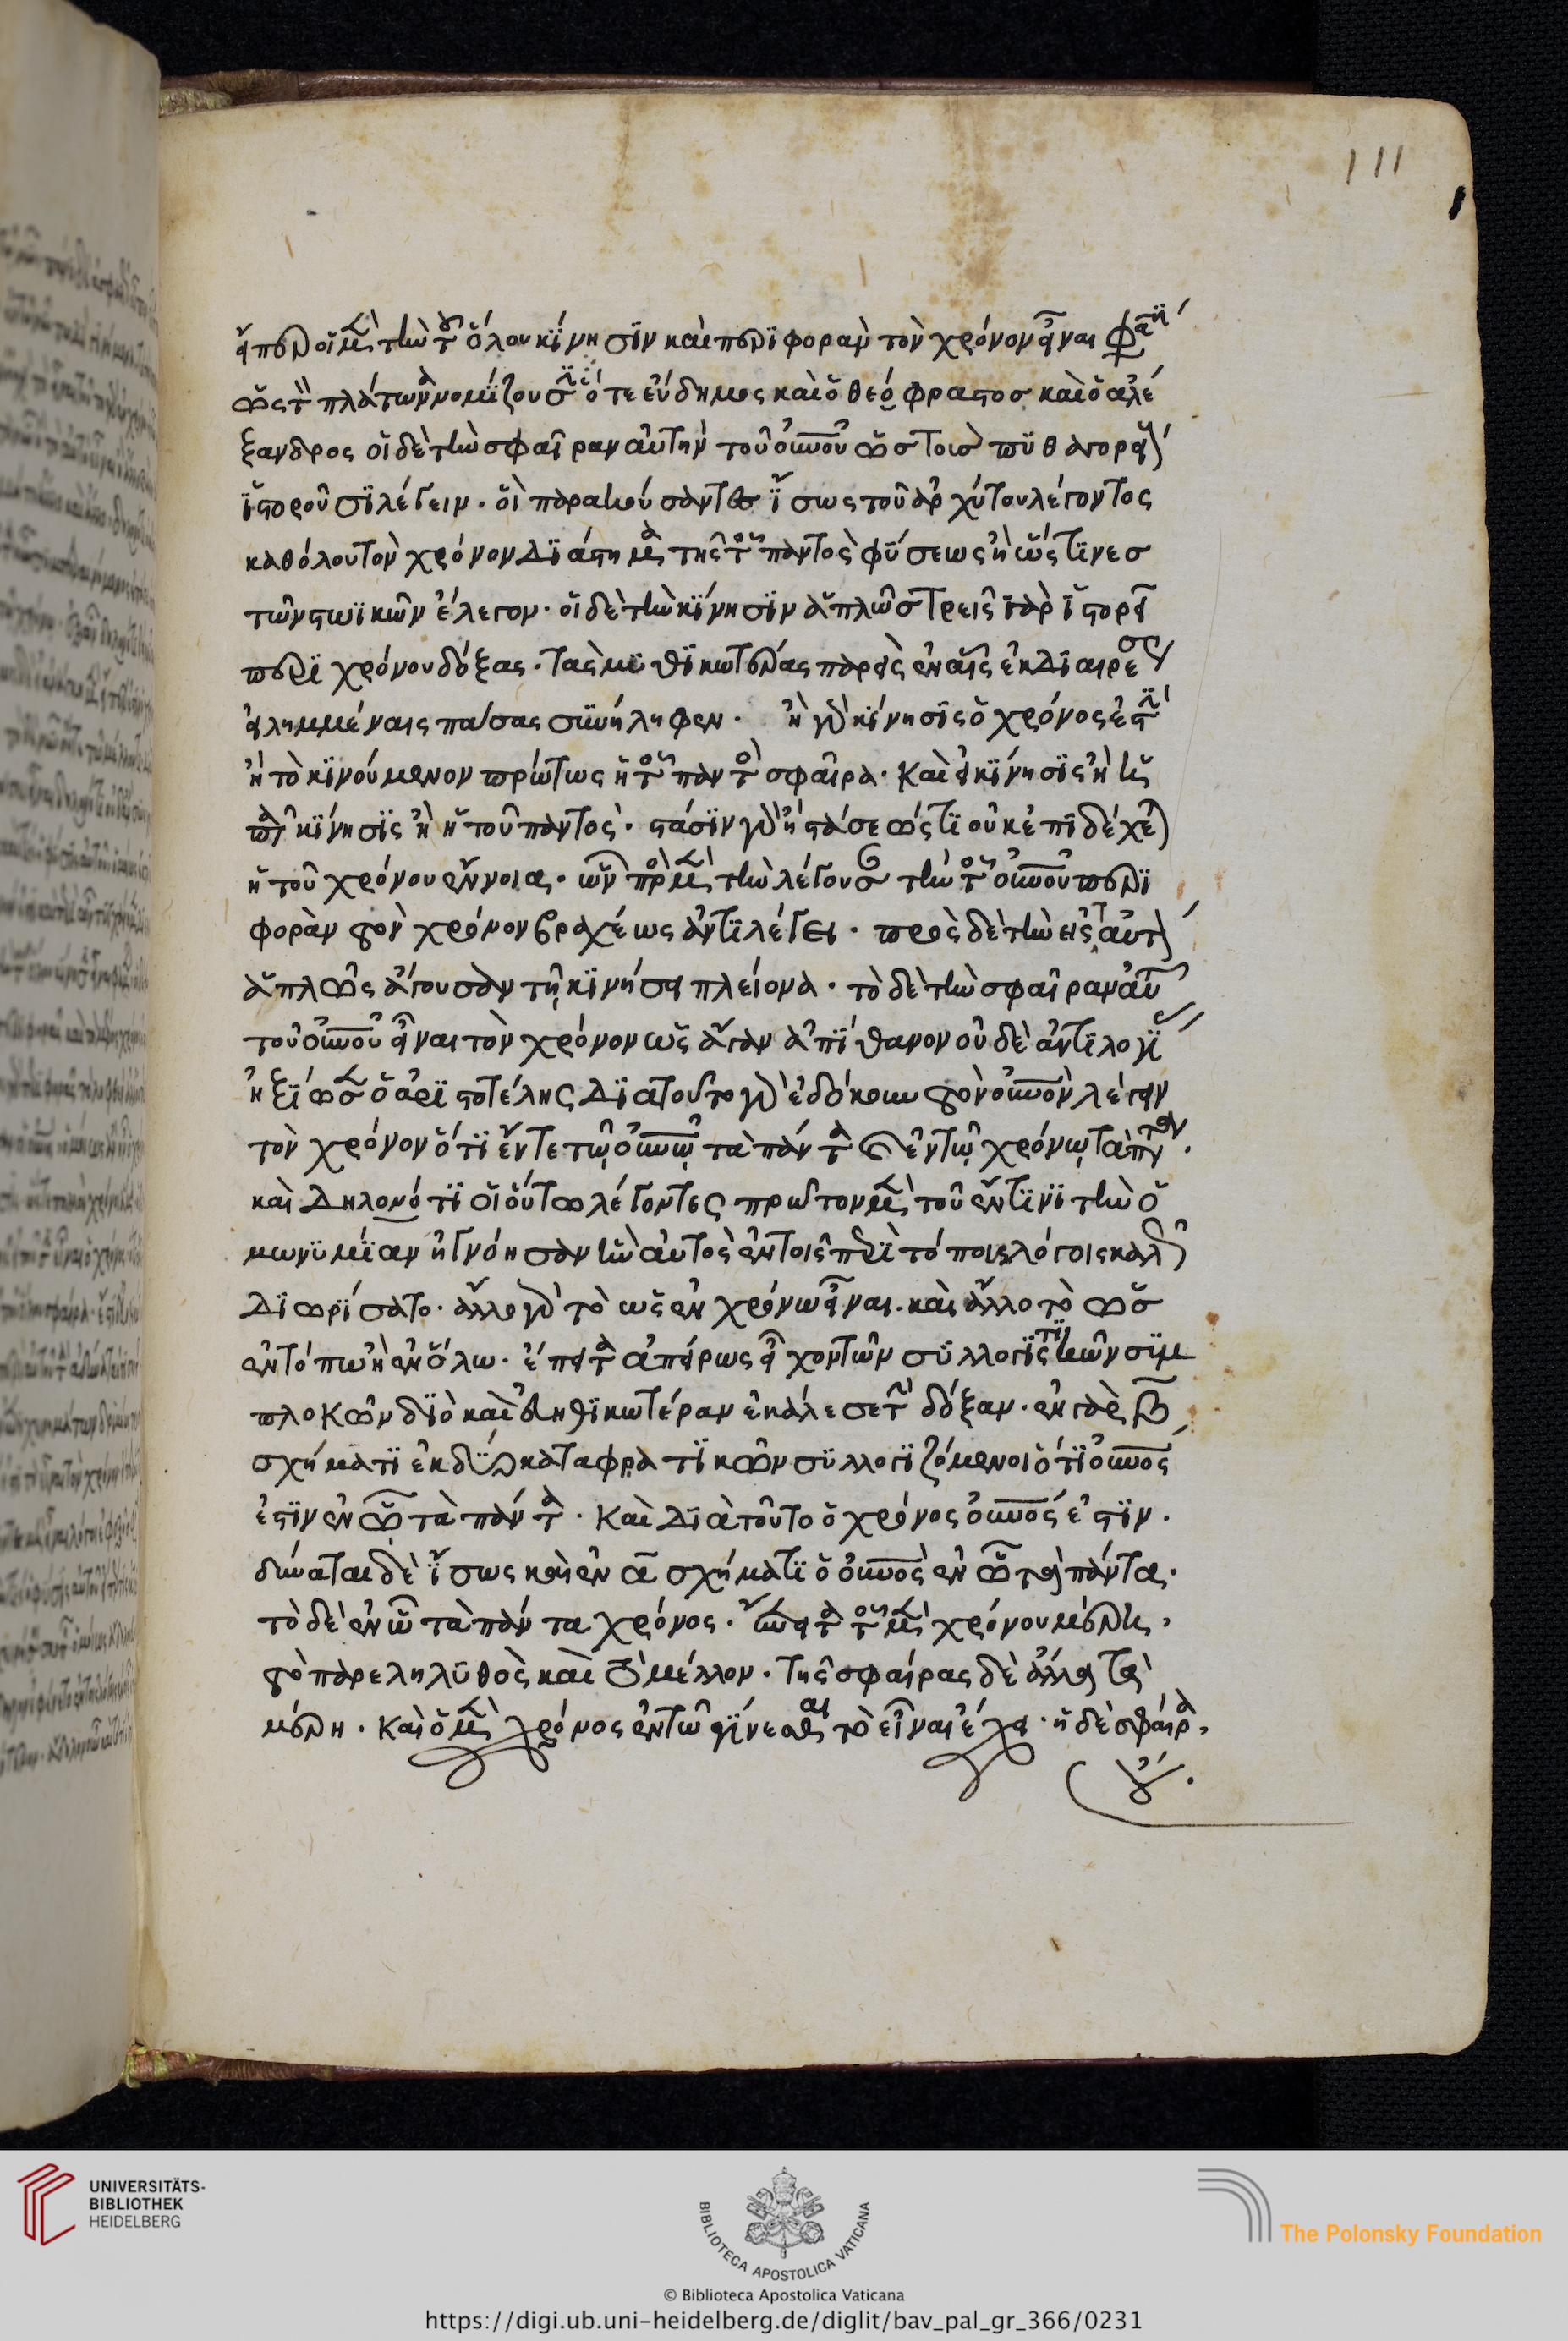 εἴπερ οἱ μὲν τὴν τοῦ ὅλου κίνησιν καὶ περιφορὰν τὸν χρόνον εἶναι φασὶν
ὡς τὸν πλάτωνα νομίζουσιν ὅ τε εὔδημος καὶ ὁ θεόφραστος καὶ ὁ ἀλέ
ξανδρος οἱ δὲ τὴν σφαῖραν αὐτὴν τοῦ οὐνοῦ ὡς τοὺς πυθαγορει
ἱστοροῦσι λέγειν. οἱ παρακούσαντες ἴσως τοῦ ἀρχύτου λέγοντος
καθόλου τὸν χρόνον διάστημα τῆς τοῦ παντὸς φύσεως ἢ ὥς τινες
τῶν στωϊκῶν ἔλεγον. οἱ δὲ τὴν κίνησιν ἁπλῶς τρεῖς γὰρ ἱστορεῖ
περὶ χρόνου δόξας. τὰς μυθικωτέρας παρεὶς ἐν αἷς ἐκ διαιρέσεως
εἰλημμέναις πάσας συνείληφεν. ἢ γὰρ κίνησις ὁ χρόνος ἐστὶν
ἢ τὸ κινούμενον πρώτως ἡ τοῦ παντὸς σφαῖρα. καὶ εἰ κίνησις ἢ
κίνησις ἢ ἡ τοῦ παντός. στάσιν γὰρ ἢ στάσεώς τι οὐκ ἐπιδέχε
ἡ τοῦ χρόνου ἔννοια. ὧν πρὸς μὲν τὴν λέγουσαν τὴν τοῦ οὐνοῦ περι
φορὰν τὸν χρόνον βραχέως ἀντιλέγει. πρὸς δὲ τὴν εἰς ταὐτὸν
ἁπλῶς ἄγουσαν τῇ κινήσει πλείονα. τὸ δὲ τὴν σφαῖραν αὐτὴν
τοῦ οὐνοῦ εἶναι τὸν χρόνον ὡς ἄγαν ἀπίθανον οὐδὲ ἀντιλογί
ἠξίωσεν ὁ ἀριστοτέλης διὰ τοῦτο γὰρ ἐδόκουν τὸν οὐνὸν λέγειν
τὸν χρόνον ὅτι ἔν τε τῷ οὐνῷ τὰ πάντα καὶ ἐν τῷ χρόνῳ τὰ πάντα.
καὶ δηλονότι οἱ οὕτω λέγοντες πρῶτον μὲν τοῦ ἔν τινι τὴν ὁ
μωνυμίαν ἠγνόησαν ἣν αὐτὸς ἐν τοῖς περὶ τόποις λόγοις καλῶς
διωρίσατο. ἄλλο γὰρ τὸ ὡς ἐν χρόνω εἶναι. καὶ ἄλλο τὸ ὡς
ἐν τόπω ἢ ἐν ὅλω. ἔπειτα ἀπείρως εἶχον τῶν συλλογιστικῶν συμ
πλοκῶν διὸ καὶ εὐηθικωτέραν ἐκάλεσε τὴν δόξαν. ἐν γὰρ β
σχήματι ἐκ δύο καταφατικῶν συλλογιζόμενοι ὅτι οὐνός
ἐστιν ἐν ᾧ τὰ πάντα. καὶ διὰ τοῦτο ὁ χρόνος οὐνός ἐστιν.
δύναται δὲ ἴσως καὶ ἐν α σχήματι ὁ οὐνὸς ἐν ᾧ τὰ πάντα.
τὸ δὲ ἐν ᾧ τὰ πάντα χρόνος. εἶτα τοῦ μὲν χρόνου μέρη,
τὸ παρεληλυθὸς καὶ τὸ μέλλον. τῆς σφαίρας δὲ ἄλλα τὰ
μέρη. καὶ ὁ μὲν χρόνος ἐν τῶ γίνεσθαι τὸ εἶναι ἔχει. ἡ δὲ σφαῖρα,
111
UNIVERSITÄTS-
BIBLIOTHEK
HEIDELBERG
BIBLIOTECA APOSTOLICA VATICANA
The Polonsky Foundation
© Biblioteca Apostolica Vaticana
https://digi.ub.uni-heidelberg.de/diglit/bav_pal_gr_366/0231